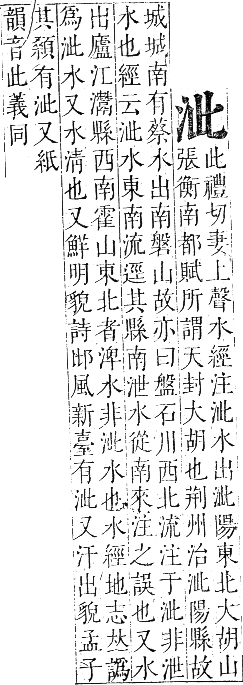 泚
此禮切妻上聲水經注泚水出泚陽東北大胡山
張衡南都賦所謂天封大胡也荆州治泚陽縣故
城城南有蔡水出南磐山故亦曰盤石川西北流注于泚非泄
水也經云泚水東南流逕其縣南泄水從南來注之誤也又水
出廬江灊縣西南霍山東北者淠水非泚水也水經地志𠀤譌
爲泚水又水清也又鮮明貌詩邶風新臺有泚又汗出貌孟子
其顙有泚又紙
韻音此義同